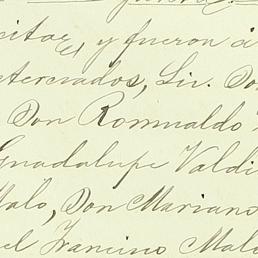 citar y fueron á
Lic. Don
Don Romualdo
Guadalupe Valdi
Malo, Don Mariano
el Francisco Malo